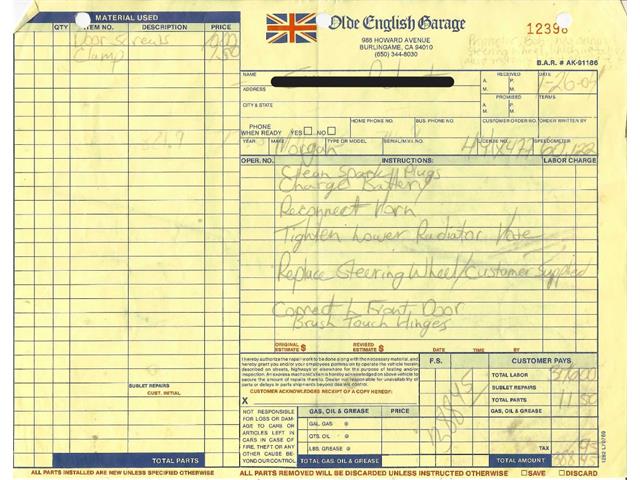 MATERIAL USED
QTY ITEM NO. DESCRIPTION PRICE
Door Screws
Clamp 1.50
SUBLET REPAIRS
CUST. INITIAL
TOTAL PARTS
ALL PARTS INSTALLED ARE NEW UNLESS SPECIFIED OTHERWISE
Olde English Garage
988 HOWARD AVENUE
BURLINGAME, CA 94010
(650) 344-8030
12398
B.A.R. # AK-91186
NAME
ADDRESS
CITY & STATE
RECEIVED DATE
A. M. P. M.
1-26-04
PROMISED TERMS
A. M. P. M.
HOME PHONE NO. BUS. PHONE NO. CUSTOMER ORDER NO. ORDER WRITTEN BY
PHONE WHEN READY YES NO
YEAR MAKE TYPE OR MODEL SERIAL/MIX. NO. LICENSE NO. SPEEDOMETER
Morgan 441X477 60,122
OPER. NO. INSTRUCTIONS: LABOR CHARGE
Clean Spark Plugs
Charge Battery
Reconnect Horn
Tighten Lower Radiator Hose
Replace Steering Wheel/Customer Supplied
Connect L Front Door
Brush Touch Hinges
ORIGINAL ESTIMATE $ REVISED ESTIMATE $
DATE TIME BY
I hereby authorize the repair work to be done along with the necessary material, and
hereby grant you and/or your employees permission to operate the vehicle herein
described on streets, highways or elsewhere for the purpose of testing and/or
inspection. An express mechanic's lien is hereby acknowledged on above vehicle to
secure the amount of repairs thereto. Dealer not responsible for unavailability of
parts or delays in parts shipments beyond dealers control.
CUSTOMER ACKNOWLEDGES RECEIPT OF A COPY HEREOF:
X
NOT RESPONSIBLE
FOR LOSS OR DAMAGE
TO CARS OR
ARTICLES LEFT IN
CARS IN CASE OF
FIRE, THEFT OR ANY
OTHER CAUSE BEYOND
OUR CONTROL
GAS, OIL & GREASE PRICE
GAL. GAS @
QTS. OIL @
LBS. GREASE @
TOTAL GAS, OIL & GREASE
F.S. CUSTOMER PAYS
TOTAL LABOR
SUBLET REPAIRS
TOTAL PARTS 11.50
GAS, OIL & GREASE
TAX .95
TOTAL AMOUNT
ALL PARTS REMOVED WILL BE DISCARDED UNLESS INSTRUCTED OTHERWISE SAVE DISCARD